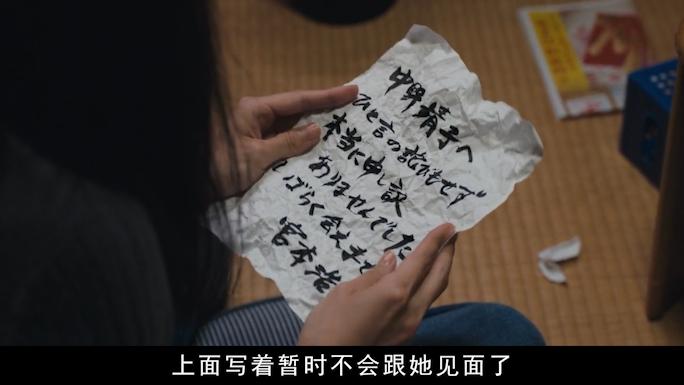 中野靖子へ
ひと言の詫びもせず
本当に申し訳
ありませんでした
しばらく会えませ
宮本浩
上面写着暂时不会跟她见面了